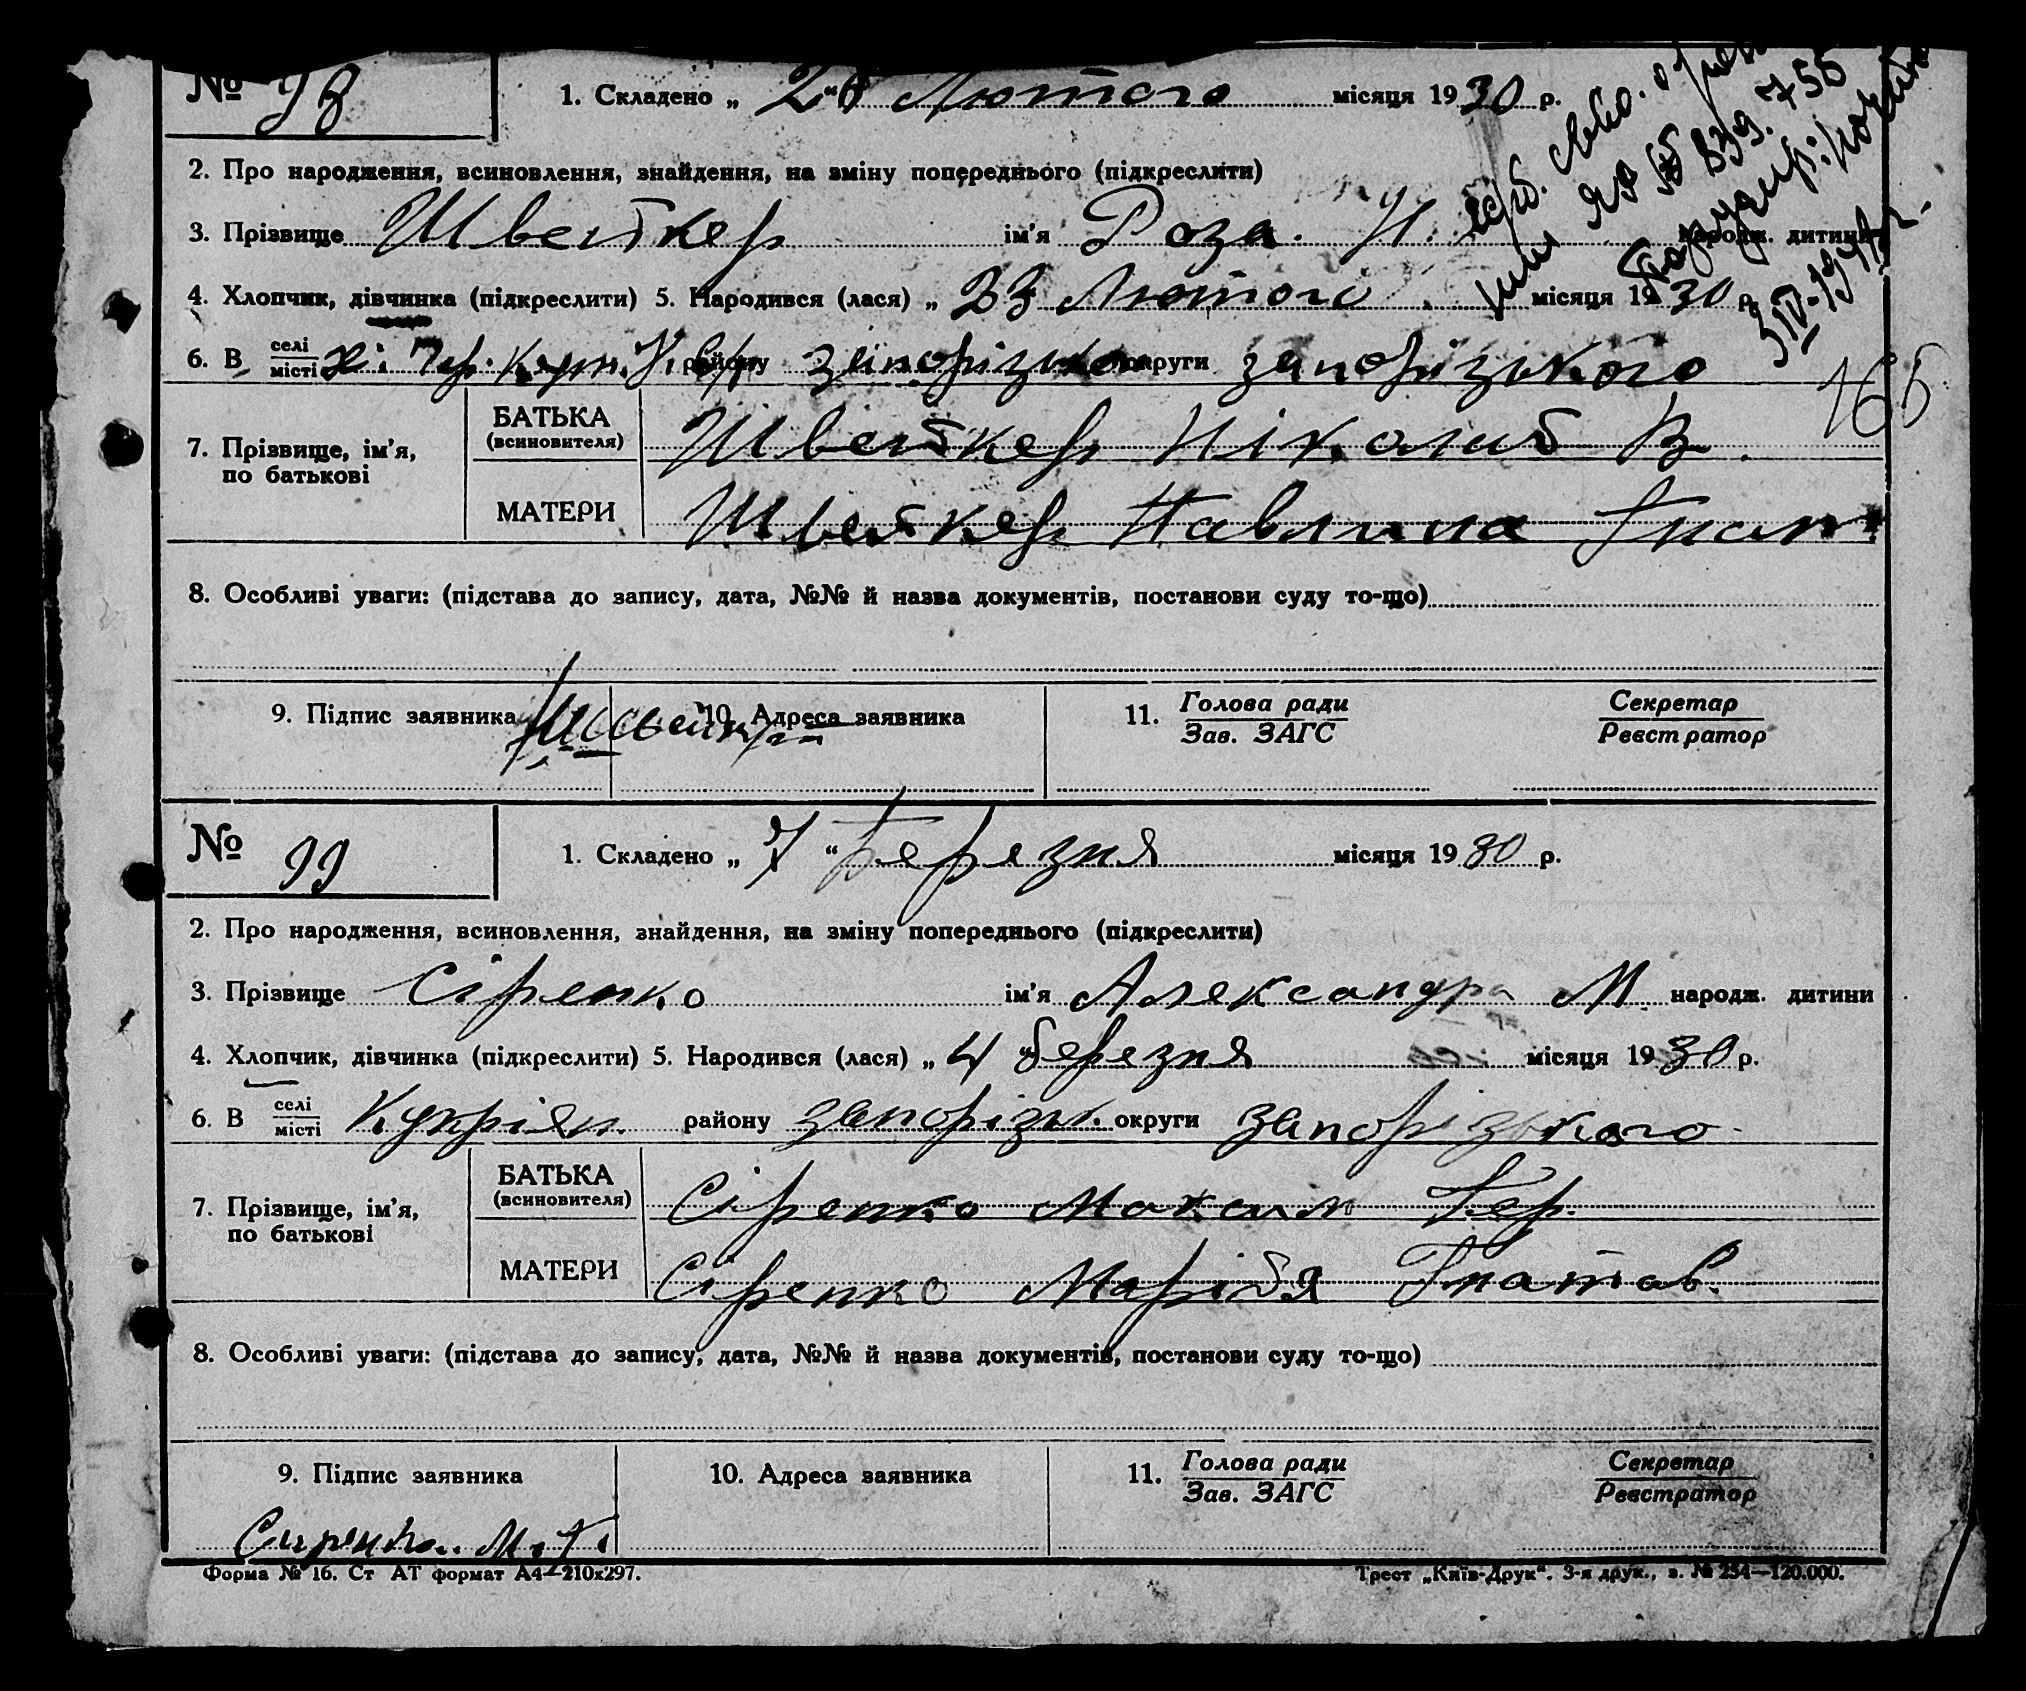 № 98 1. Складено „ 26 " Лютого місяця 1930 р.
2. Про народження, всиновлення, знайдення, на зміну попереднього (підкреслити)
3. Прізвище Швейкер ім'я Роза. Н. народж. дитини
4. Хлопчик, дівчинка (підкреслити) 5. Народився (лася) „ 23 Лютого місяця 1930 р.
6. В селі/місті району Запорізько округи запорізького
165
7. Прізвище, ім'я, по батькові
БАТЬКА (всиновителя) Швейкер Ніколай В.
МАТЕРИ Швейкер Павлина Гнат
8. Особливі уваги: (підстава до запису, дата, №№ й назва документів, постанови суду то-що)
9. Підпис заявника 10. Адреса заявника 11. Голова ради/Зав. ЗАГС Секретар/Реєстратор
№ 99 1. Складено „ 7 " Березня місяця 1930 р.
2. Про народження, всиновлення, знайдення, на зміну попереднього (підкреслити)
3. Прізвище Сіренко ім'я Александра М. народж. дитини
4. Хлопчик, дівчинка (підкреслити) 5. Народився (лася) „ 4 " березня місяця 1930 р.
6. В селі/місті району запорізьк. округи запорізького
7. Прізвище, ім'я, по батькові
БАТЬКА (всиновителя) Сіренко
МАТЕРИ Сіренко Марійя Гнатов.
8. Особливі уваги: (підстава до запису, дата, №№ й назва документів, постанови суду то-що)
9. Підпис заявника 10. Адреса заявника 11. Голова ради/Зав. ЗАГС Секретар/Реєстратор
Форма № 16. Ст АТ формат А4—210х297. Трест „Київ-Друк". 3-я друк., з. № 254—120.000.